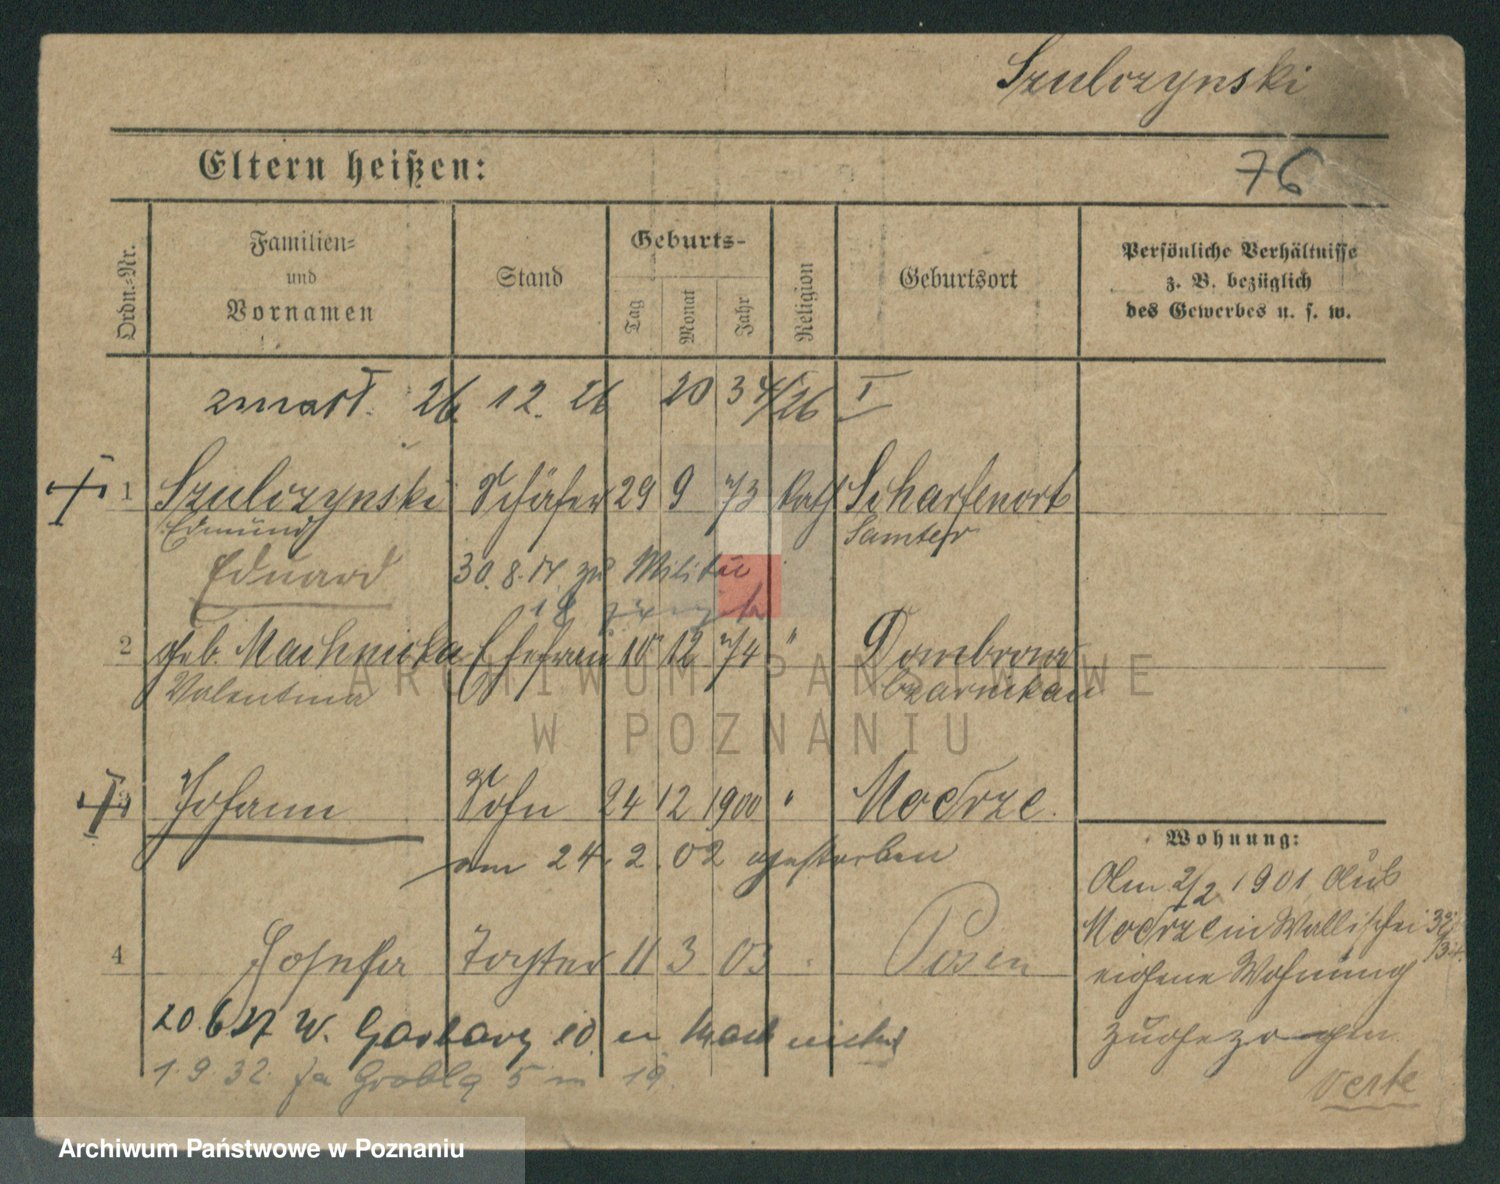 Szulczynski
Eltern heißen:
76
Ordn.-Nr.
Familien-
und
Vornamen
Stand
Geburts-
Tag
Monat
Jahr
Religion
Geburtsort
Persönliche Verhältnisse
z. B. bezüglich
des Gewerbes u. s. w.
zmarł. 26. 12. 26 20 34/26 I
1 Szulczynski Schäfer 29 9 73 Kath Scharfenort
Edmund Samter
Eduard 30.8.17. zu Militär
18
2 geb. Machnicka Ehefrau 10 12 74 " Dombrowa
Valentina Czarnikau
3 Johann Sohn 24 12 1900 " Modrze
am 24. 2. 02 gestorben
Wohnung:
Am 2/2 1901 Aus
Modrze in Wallischei
eigene Wohnung
zugezogen
4 Josefa Tochter 11 3 03 Posen
20.6.27 W. Garbary 10
1.9.32 Grobla 5 m 19.
verte
ARCHIWUM PAŃSTWOWE
W POZNANIU
Archiwum Państwowe w Poznaniu